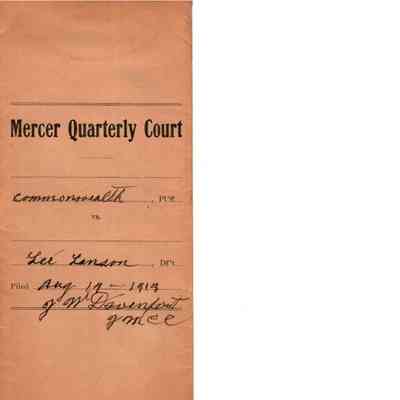 Mercer Quarterly Court
Commonwealth, Pltff.
vs.
Lee Lanson, Dft.
Filed Aug 19 - 1913
J W Davenport
J M C C